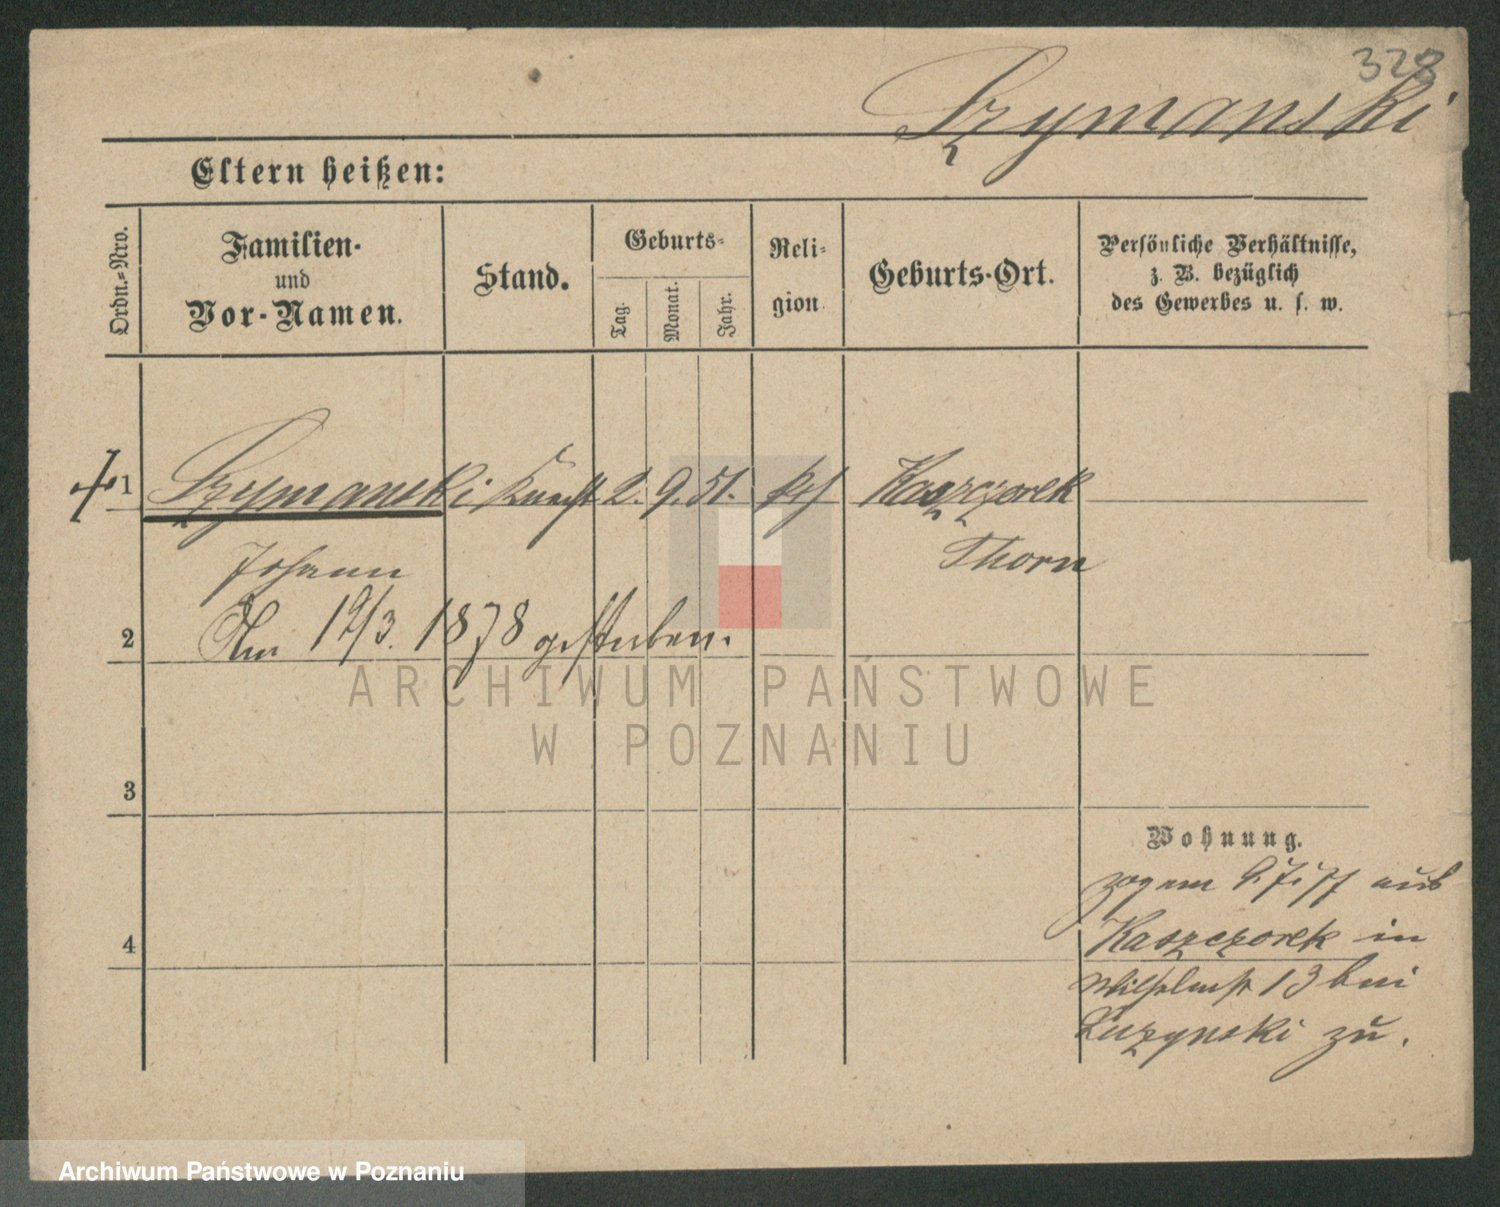 328
Szymanski
Eltern heißen:
Ordn.-Nro.
Familien-
und
Vor-Namen.
Stand.
Geburts-
Tag.
Monat.
Jahr.
Reli-
gion.
Geburts-Ort.
Persönliche Verhältnisse,
z. B. bezüglich
des Gewerbes u. s. w.
1 Szymanski Knecht 2. 9. 51. Kaszczorek
Johann Thorn
2 Am 19/3. 1878 gestorben.
ARCHIWUM PAŃSTWOWE
W POZNANIU
3
Wohnung.
zog am aus
4 Kaszczorek in
Wilhelmstr 13 bei
Luzynski zu.
Archiwum Państwowe w Poznaniu